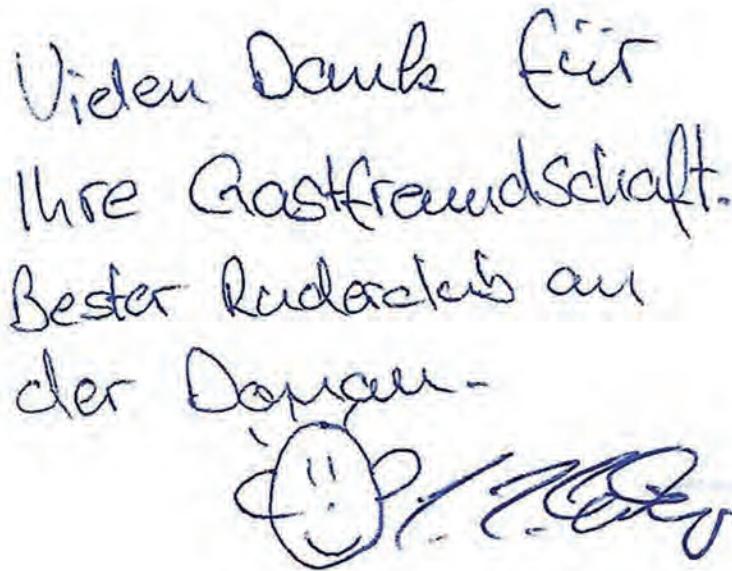 Vielen Dank für
Ihre Gastfreundschaft.
Bester Ruderclub an
der Donau.